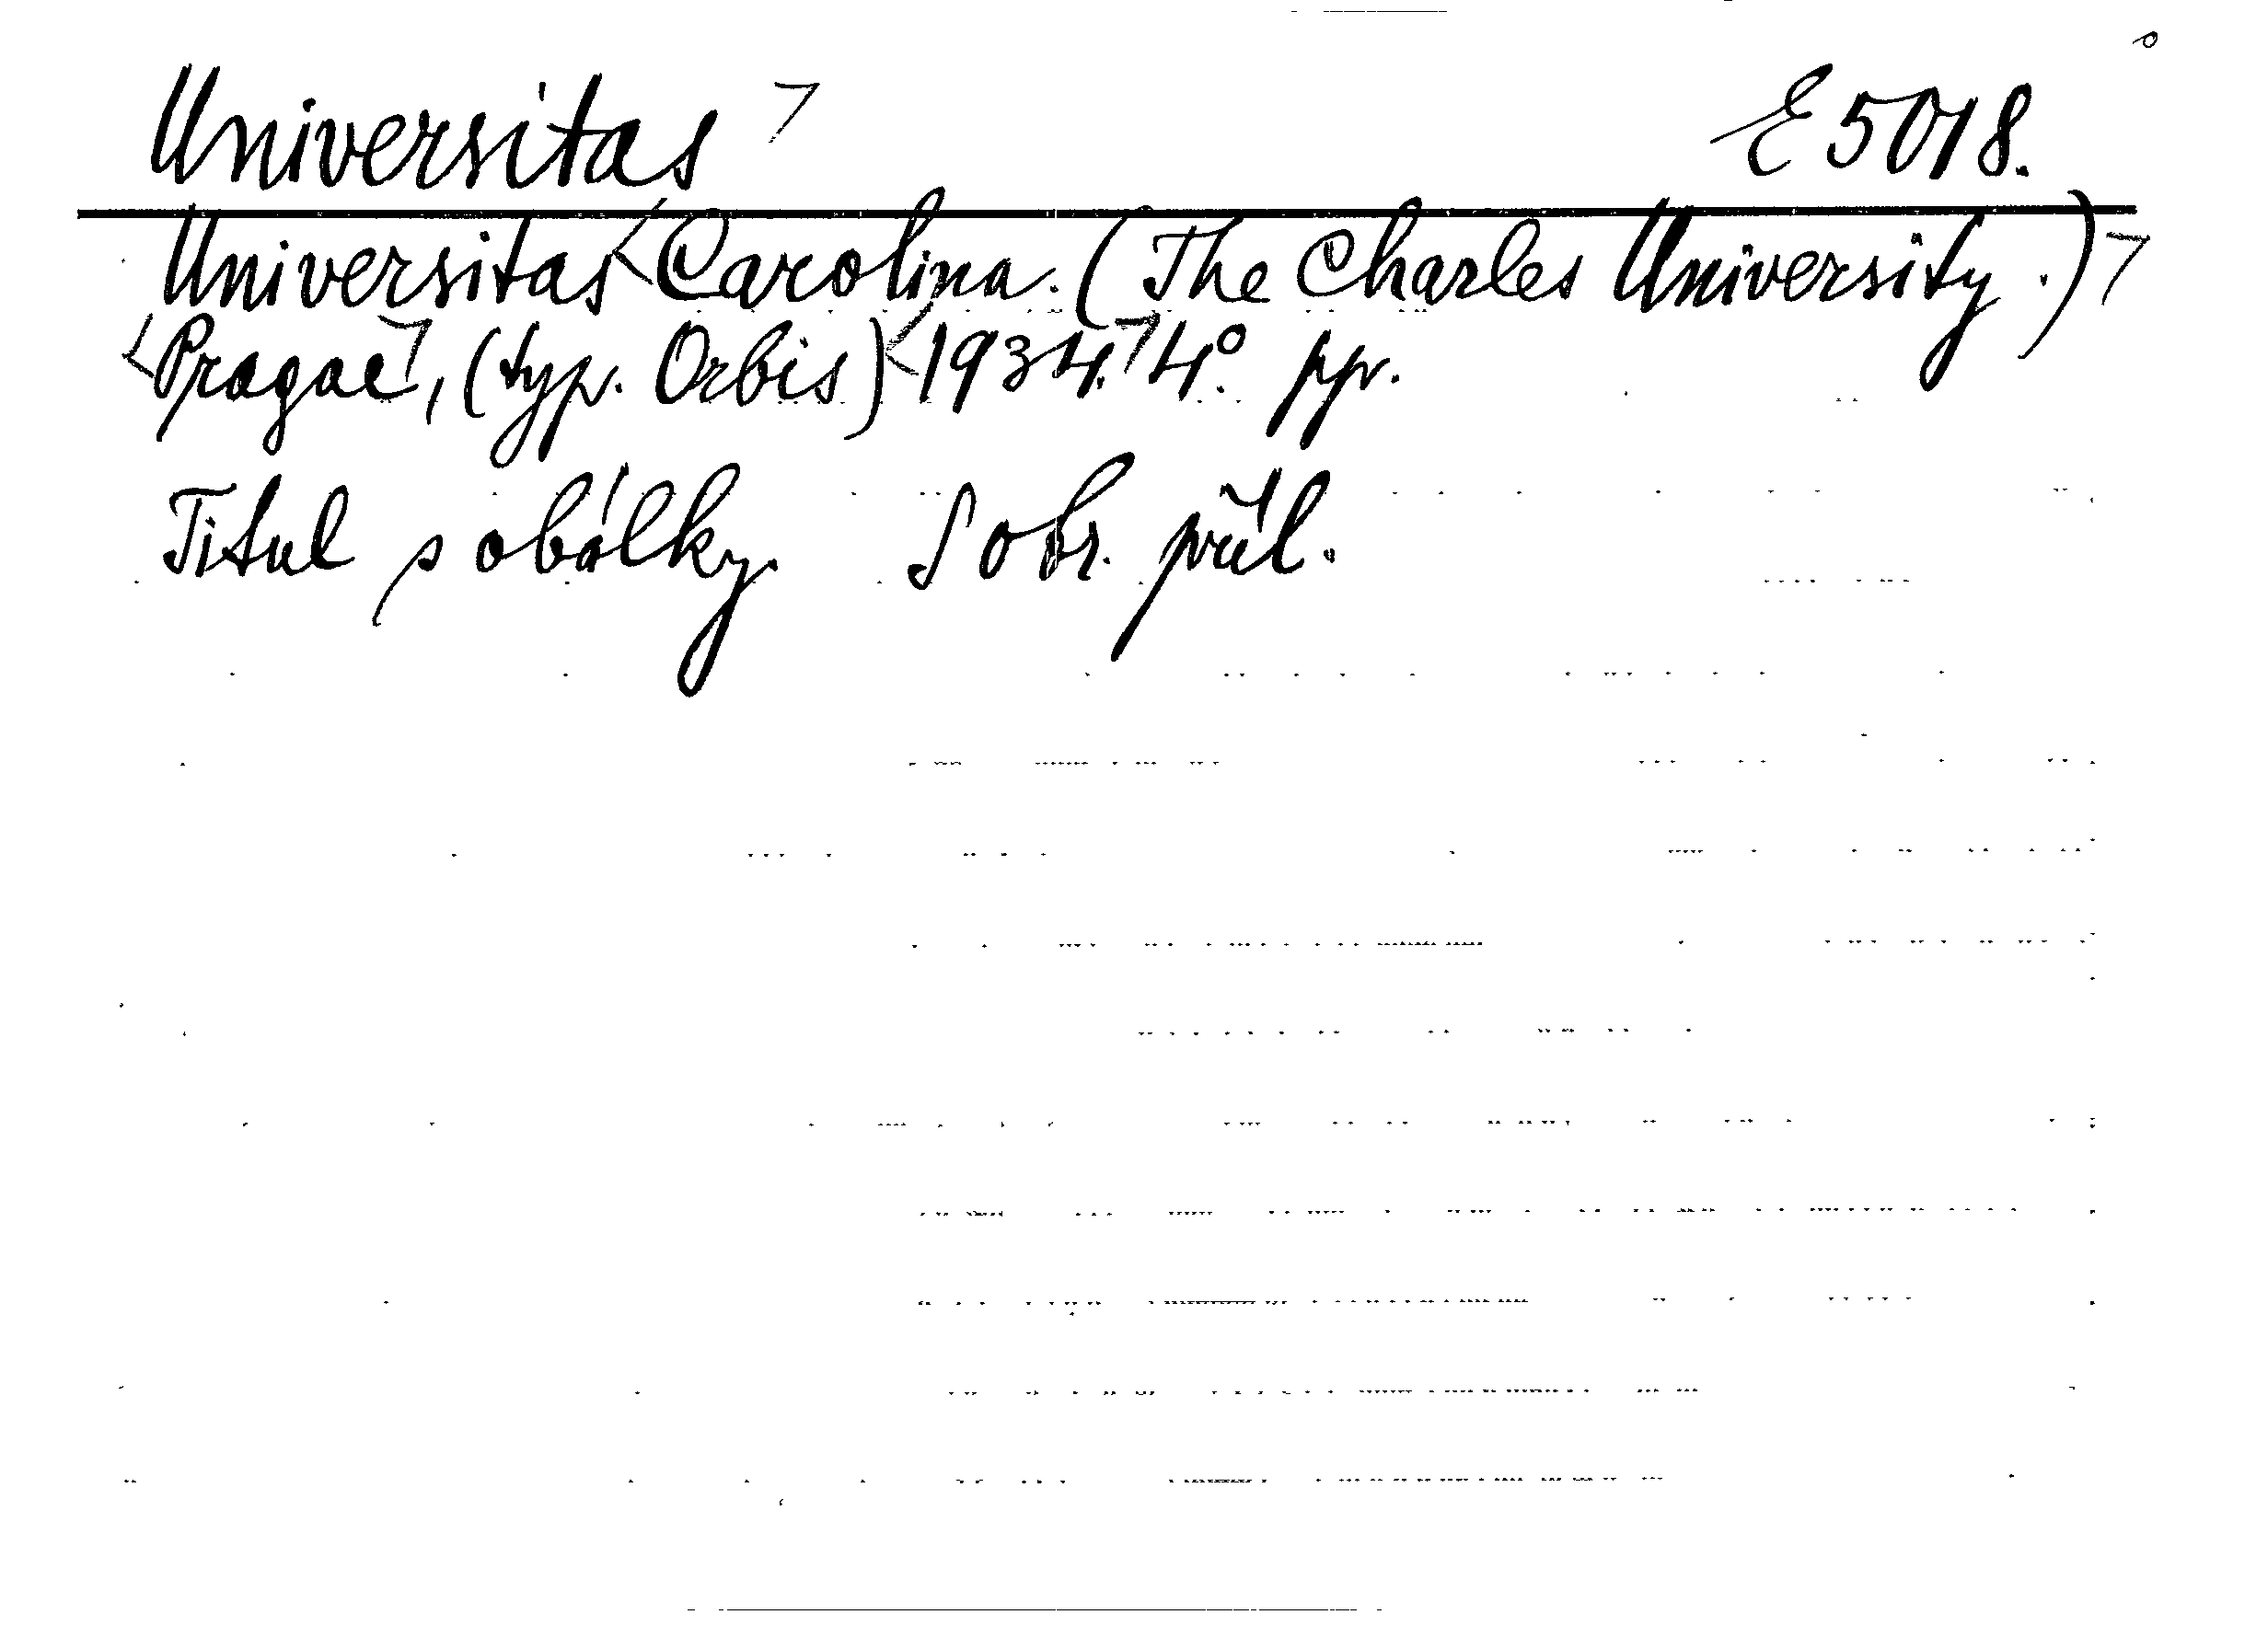 Universitas E 5018.
Universitas Carolina. (The Charles University.)
Pragae, (typ. Orbis) 1934. 4º. pp.
Titul s obálky. S obr. příl.